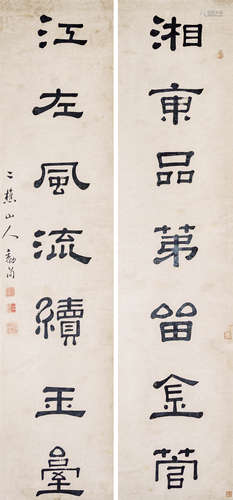 湘東品第留金管
江左風流續玉臺
二樵山人黎簡